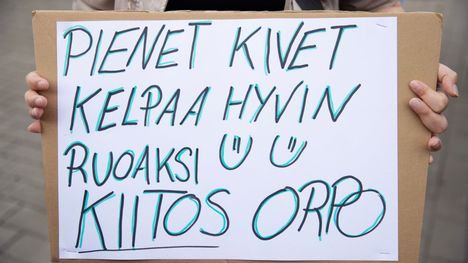 PIENET KIVET
KELPAA HYVIN
RUOAKSI Ü Ü
KIITOS ORPO